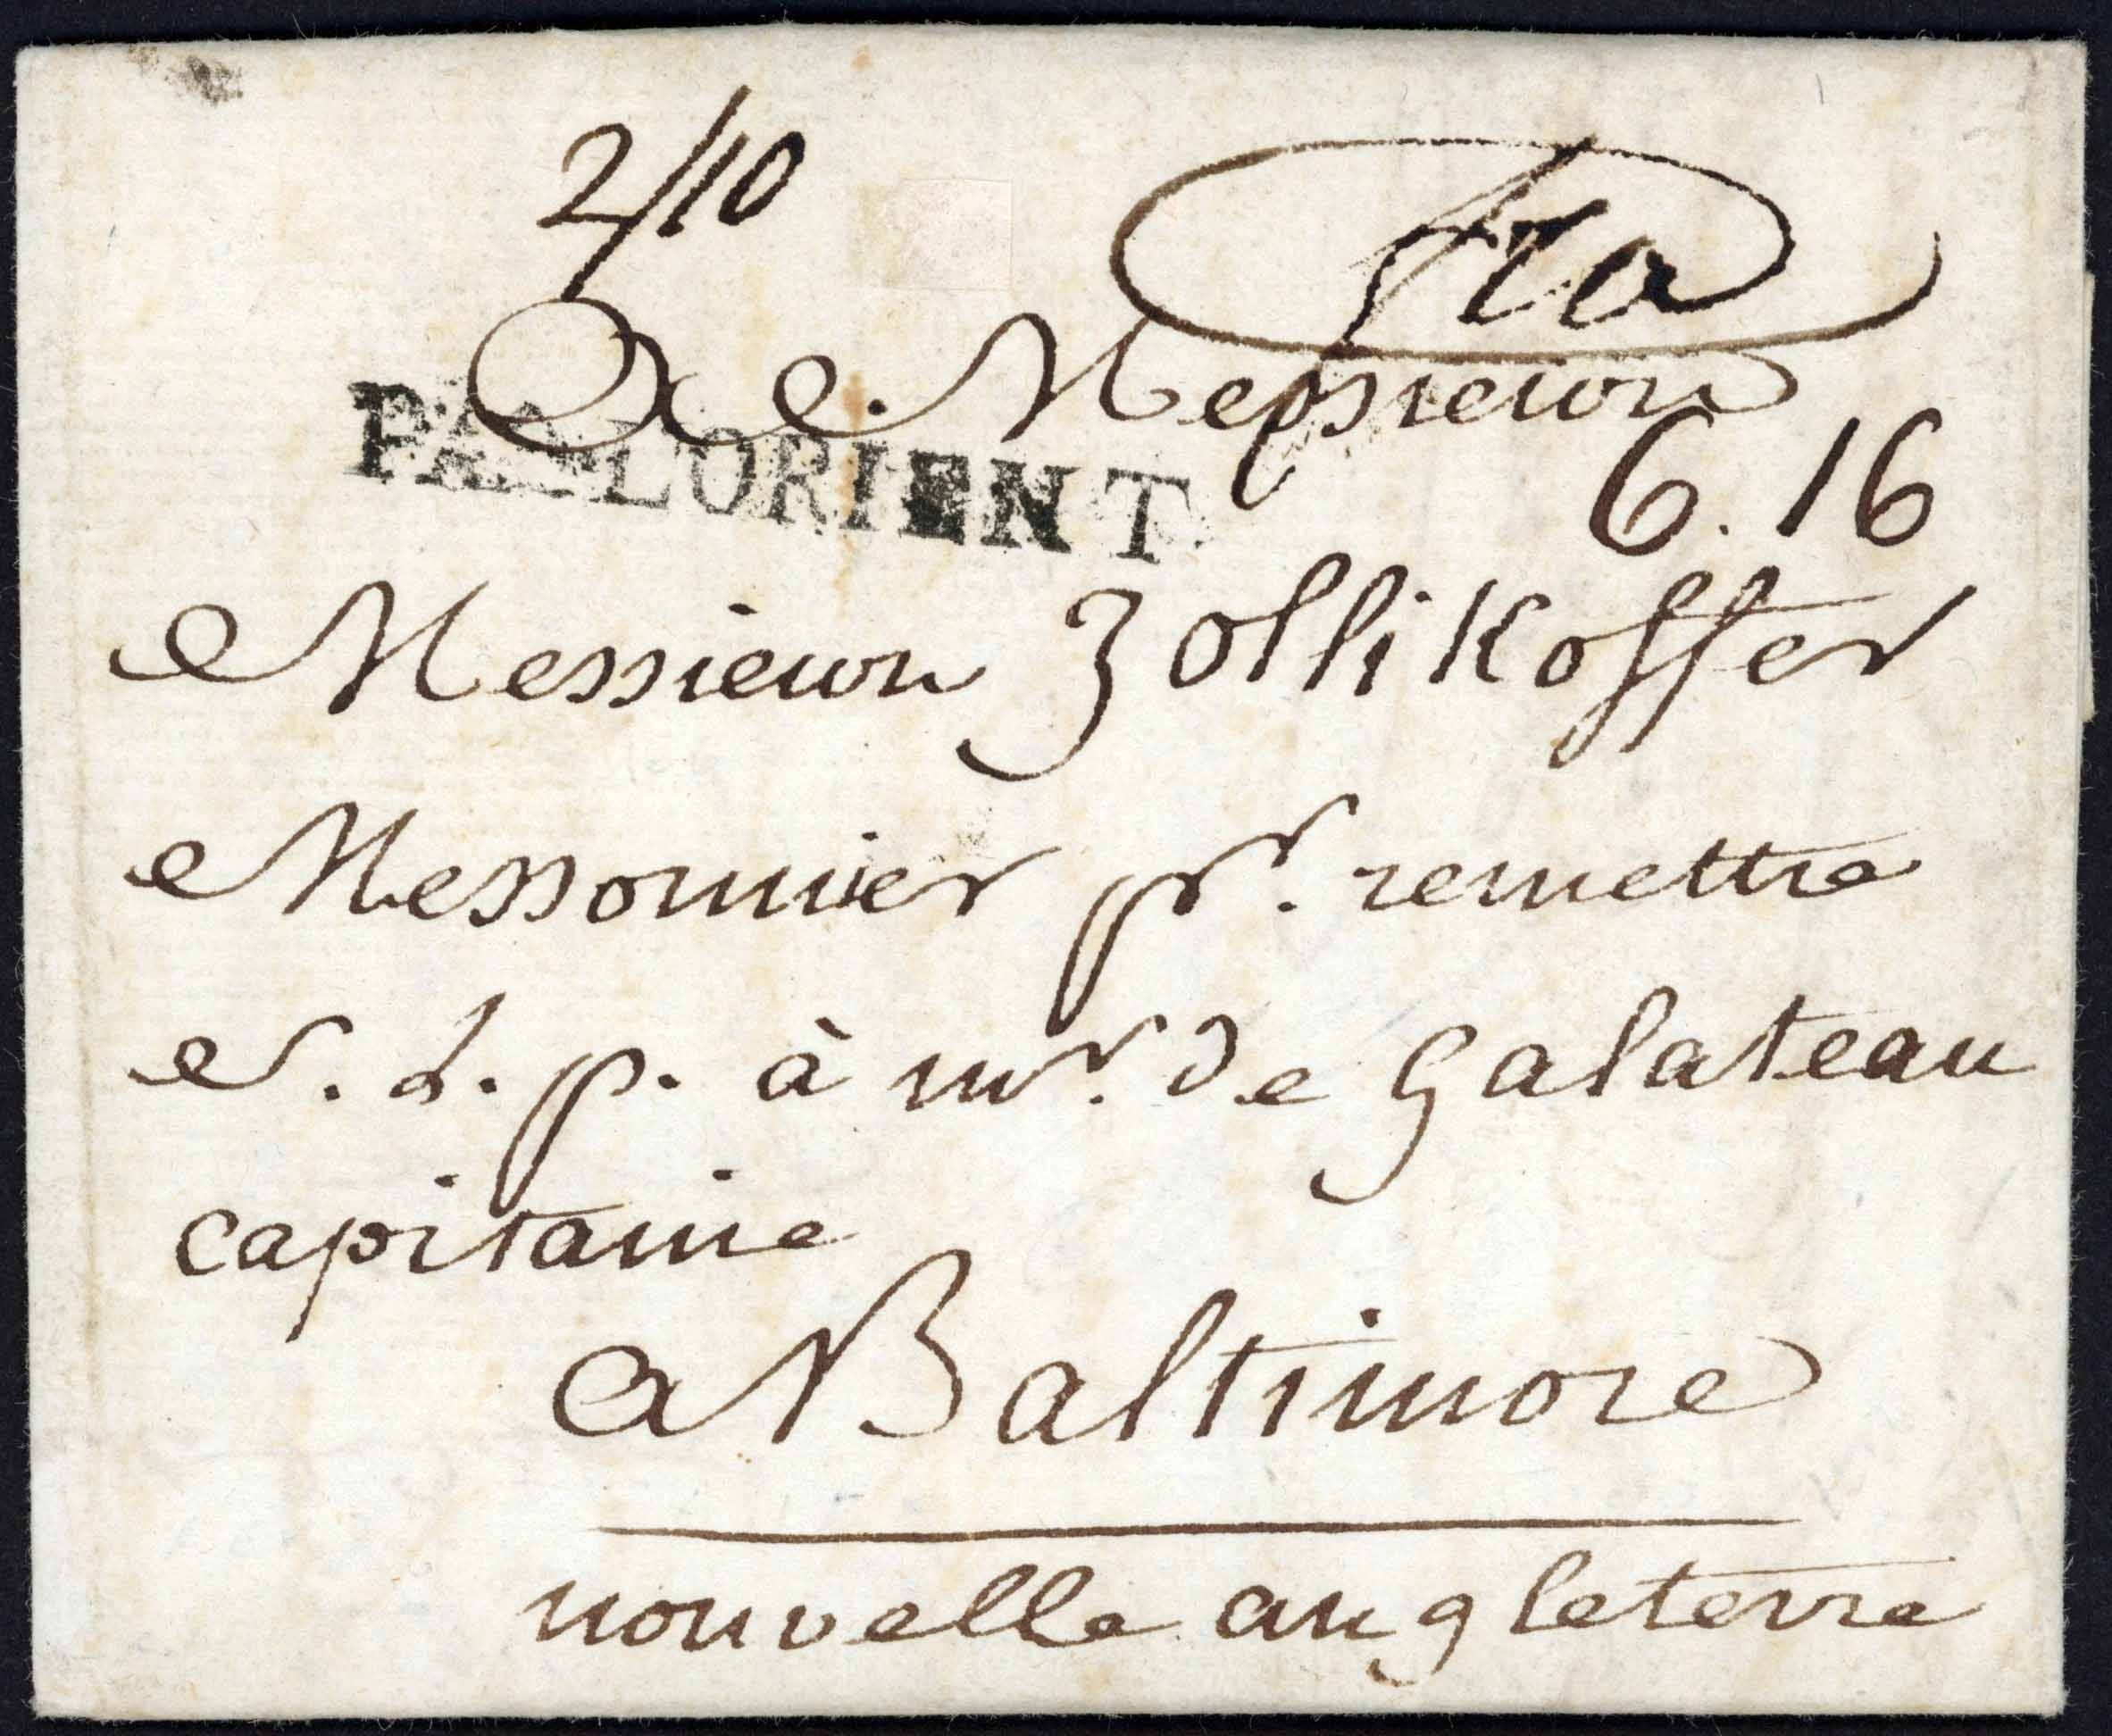 2/10
A Messieurs
PAR LORIENT
6.16
Messieurs Zollikoffer
Messonnier pr. remettre
s. l. p. à mr. de Galateau
capitaine
A Baltimore
nouvelle angleterre